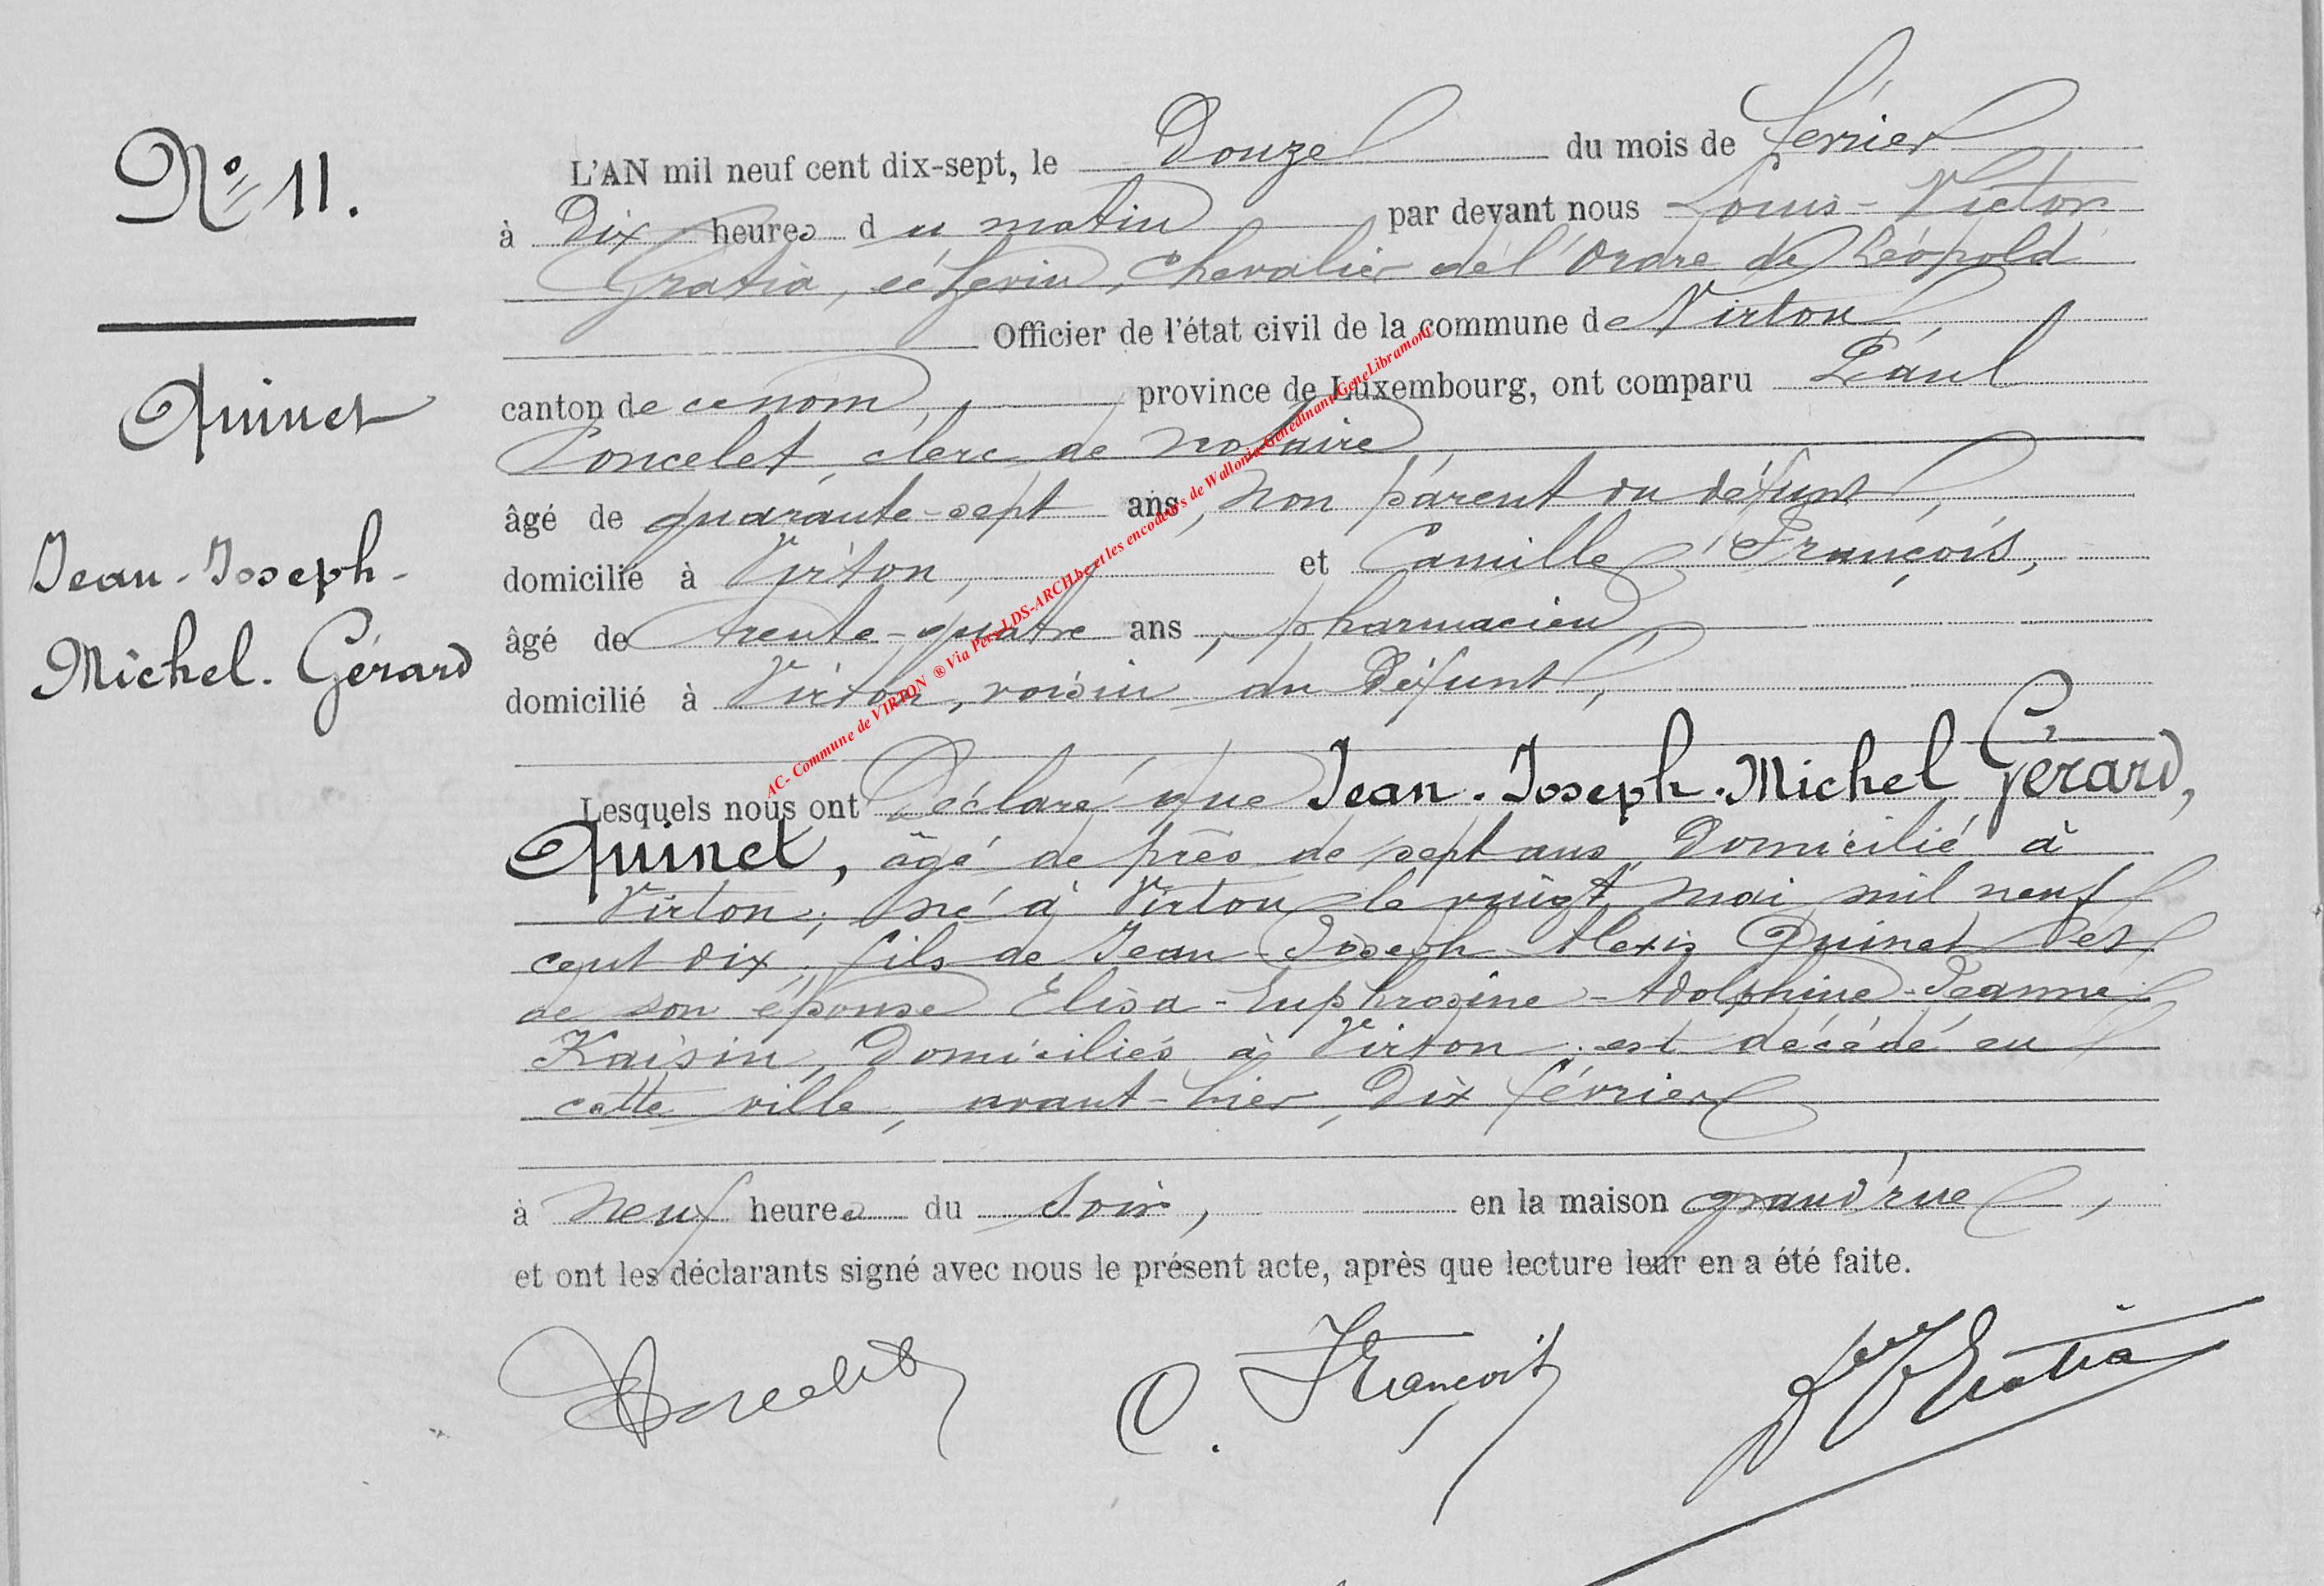 N° 11.
Quinet
Jean-Joseph-
Michel-Gérard
L'AN mil neuf cent dix-sept, le Douze du mois de février
à Dix heures du matin par devant nous Louis-Victor
Gratia, échevin, Chevalier de l'Ordre de Léopold
Officier de l'état civil de la commune de Virton,
canton de ce nom, province de Luxembourg, ont comparu Paul
Poncelet, clerc de notaire,
âgé de quarante-sept ans, non parent du défunt,
domicilié à Virton, et Camille François,
âgé de trente-quatre ans, pharmacien,
domicilié à Virton, voisin du Défunt,
Lesquels nous ont Déclaré que Jean-Joseph-Michel Gérard,
Quinet, âgé de près de sept ans, Domicilié à
Virton, né à Virton le vingt mai mil neuf
cent dix, fils de Jean-Joseph Alexis Quinet et
de son épouse Elisa-Euphrosine-Adolphine-Jeanne
Kaisin, Domiciliés à Virton, est décédé en
cette ville, avant-hier, Dix février
à neuf heures du soir, en la maison grand'rue,
et ont les déclarants signé avec nous le présent acte, après que lecture leur en a été faite.
C. François
LV Gratia
AC- Commune de VIRTON ® Via Pers LDS-ARCH.be et les encodeurs de Wallonia-Genedinant-GeneLibramont